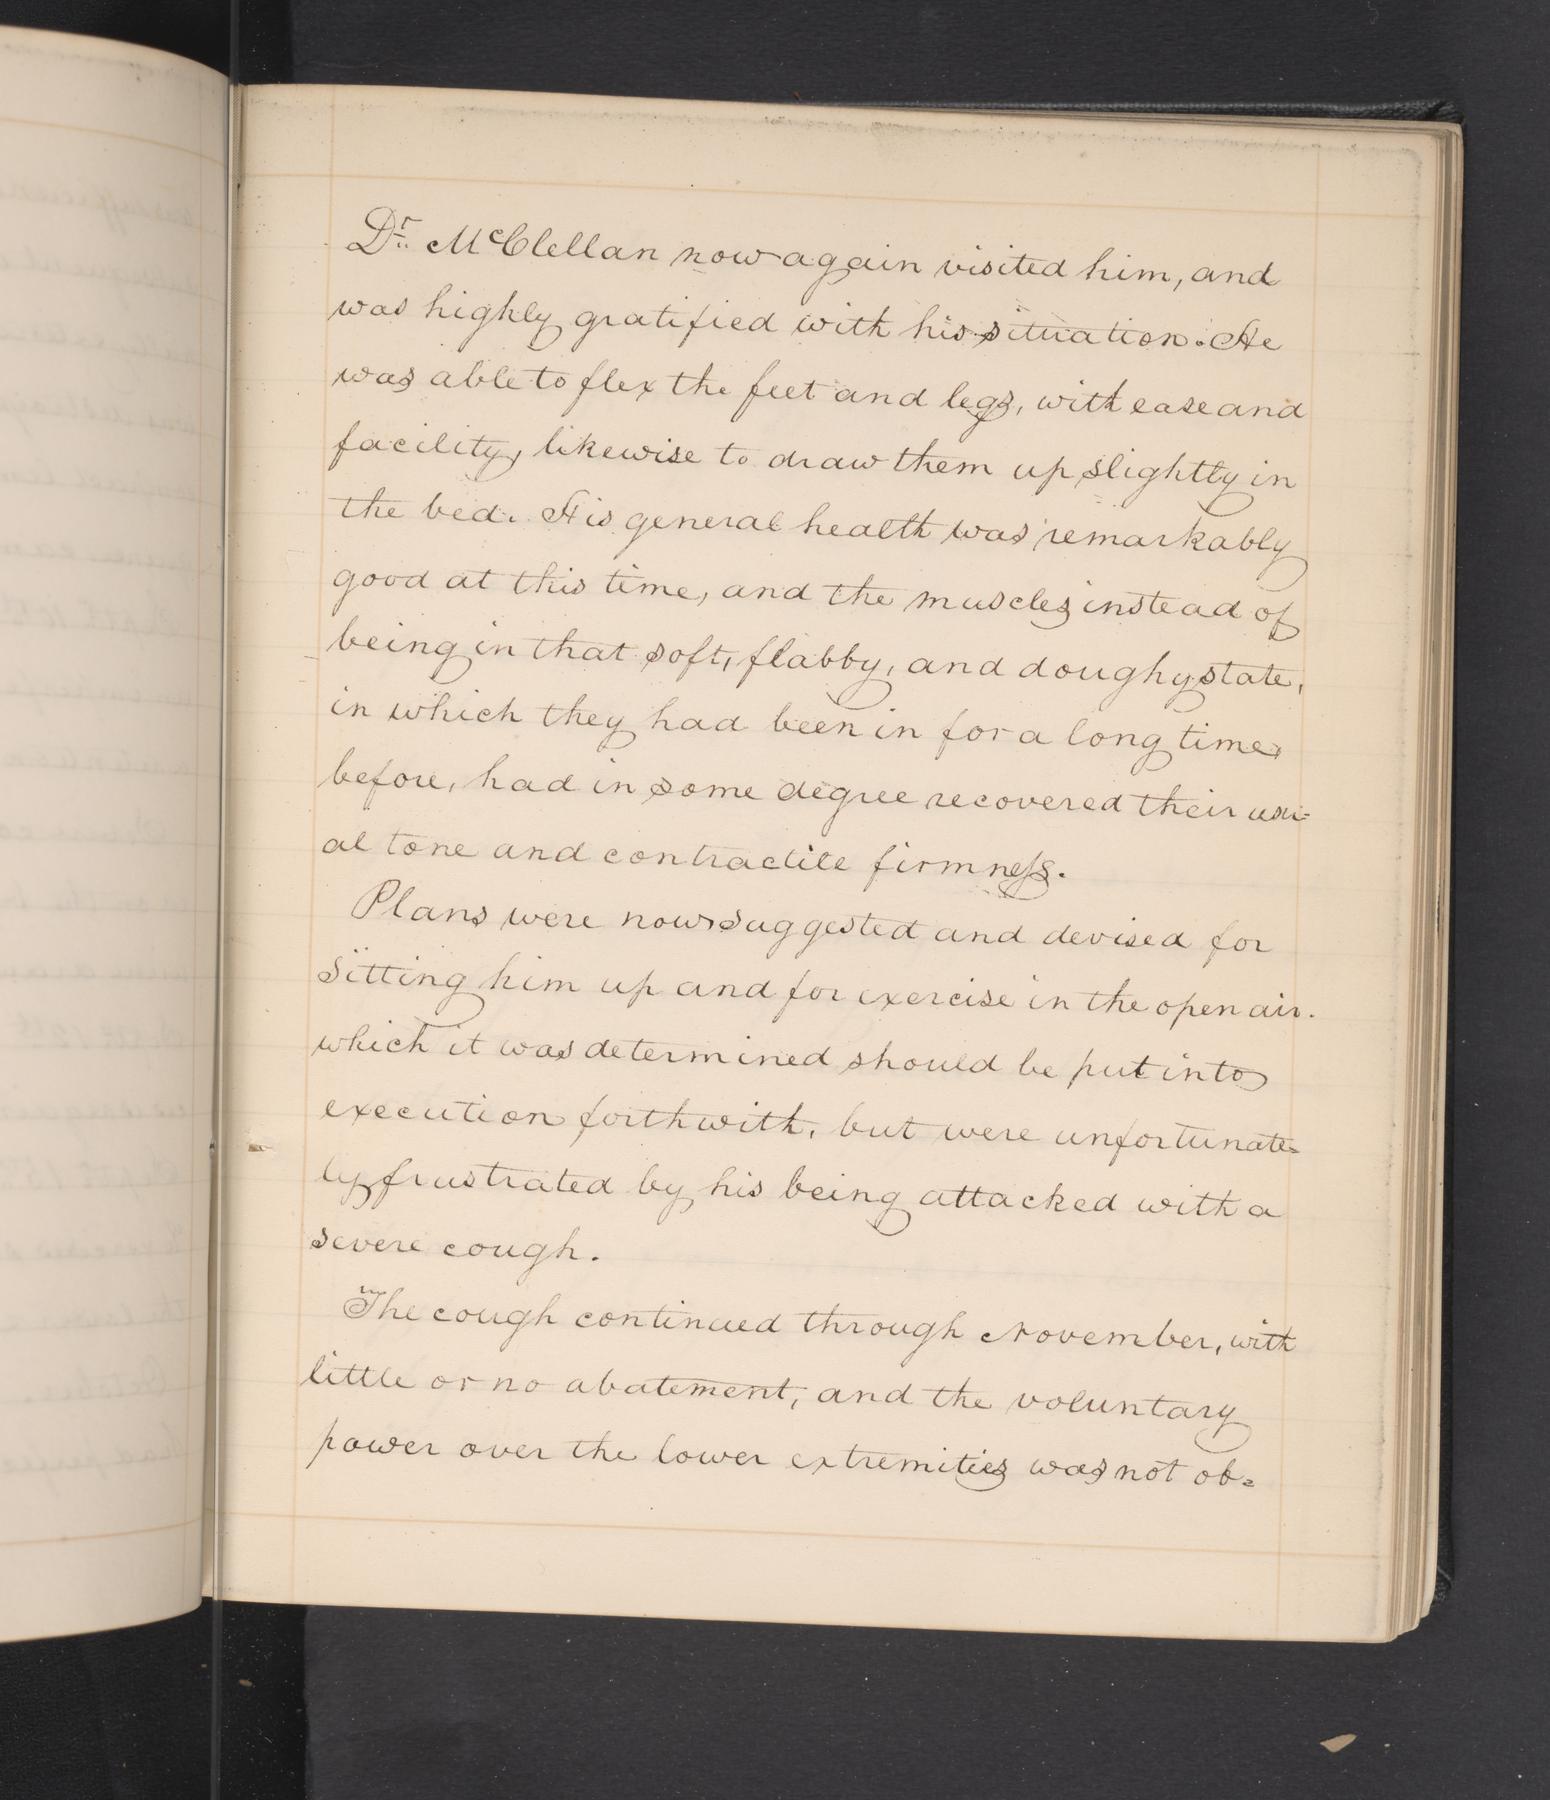 Dr. McClellan now again visited him, and
was highly gratified with his situation. He
was able to flex the feet and legs, with ease and
facility, likewise to draw them up slightly in
the bed. His general health was remarkably
good at this time, and the muscles instead of
being in that soft, flabby, and doughy state,
in which they had been in for a long time,
before, had in some degree recovered their usu-
al tone and contractile firmness.
Plans were now suggested and devised for
sitting him up and for exercise in the open air.
which it was determined should be put into
execution forthwith, but were unfortunate=
ly frustrated by his being attacked with a
severe cough.
The cough continued through November, with
little or no abatement, and the voluntary
power over the lower extremities was not ob=